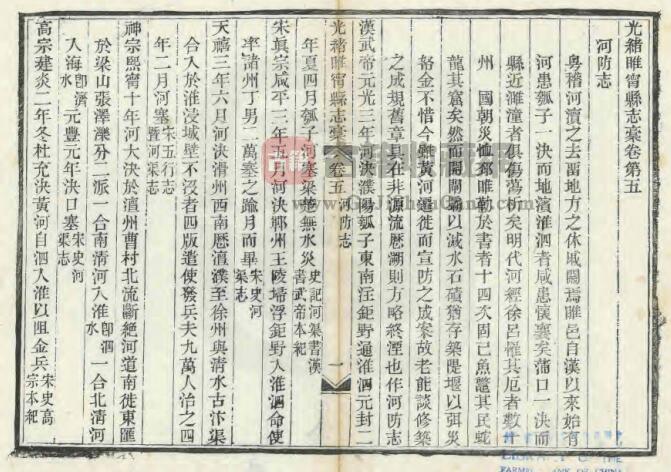 光緒睢甯縣志稾卷第五
河防志
粤稽河瀆之去畱地方之休戚關焉睢邑自漢以來始有
河患瓠子一決而地濱淮泗者咸患懷襄矣蒲口一決而
縣近濉潼者俱傷蕩析矣明代河經徐呂罹其厄者數十
州 國朝災恤邳睢勒於書者十四次固已魚鼈其民蛇
龍其窟矣然而開閘壩以減水石磧猶存築隄堰以弭災
帑金不惜今雖黃河遷徙而宣防之成案故老能談修築
之成規舊章具在非源流厯溯則方略終湮也作河防志
漢武帝元光三年河決濮陽瓠子東南注鉅野通淮泗元封二
光緒睢甯縣志稾 卷五 河防志 一
年夏四月瓠子河塞梁楚無水災 史記河渠書漢書武帝本紀
宋真宗咸平三年五月河決鄆州王陵埽浮鉅野入淮泗命使
率諸州丁男二萬塞之踰月而畢 宋史河渠志
天禧三年六月河決滑州西南厯澶濮至徐州與清水古汴渠
合入於淮浸城壁不沒者四版遣使發兵夫九萬人治之四
年二月河塞 宋五行志暨河渠志
神宗熙甯十年河大決於澶州曹村北流斷絕河道南徙東匯
於梁山張澤濼分二派一合南清河入淮 卽泗水 一合北清河
入海 卽濟水 元豐元年決口塞 宋史河渠志
高宗建炎二年冬杜充決黃河自泗入淮以阻金兵 宋史高宗本紀
LIBRARY OF THE
FARMERS BANK OF CHINA